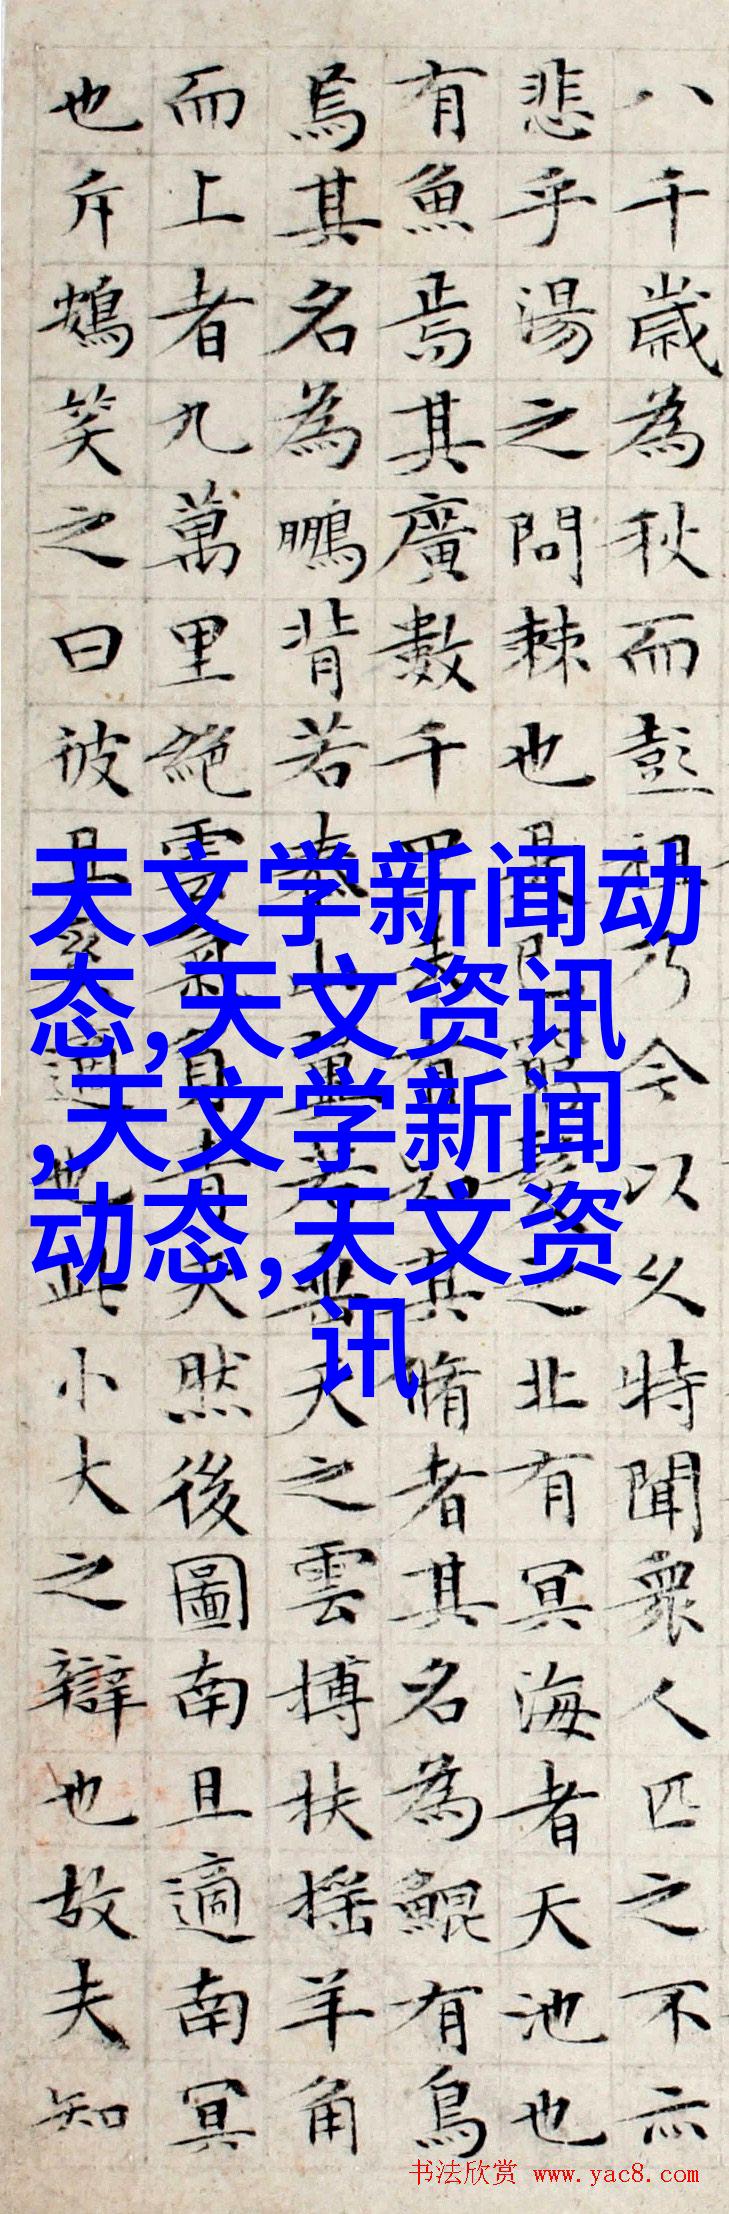 八千歲為秋而彭祖乃今以久特聞眾人匹之不亦
悲乎湯之問棘也是已窮髮之北有冥海者天池也
有魚焉其廣數千里未有知其脩者其名為鯤有鳥
焉其名為鵬背若泰山翼若垂天之雲搏扶搖羊角
而上者九萬里絕雲氣負青天然後圖南且適南冥
也斥鴳笑之曰彼且奚適也此小大之辯也故夫知
天文学新闻动
态,天文资讯
,天文学新闻
动态,天文资
讯
书法欣赏 www.yac8.com